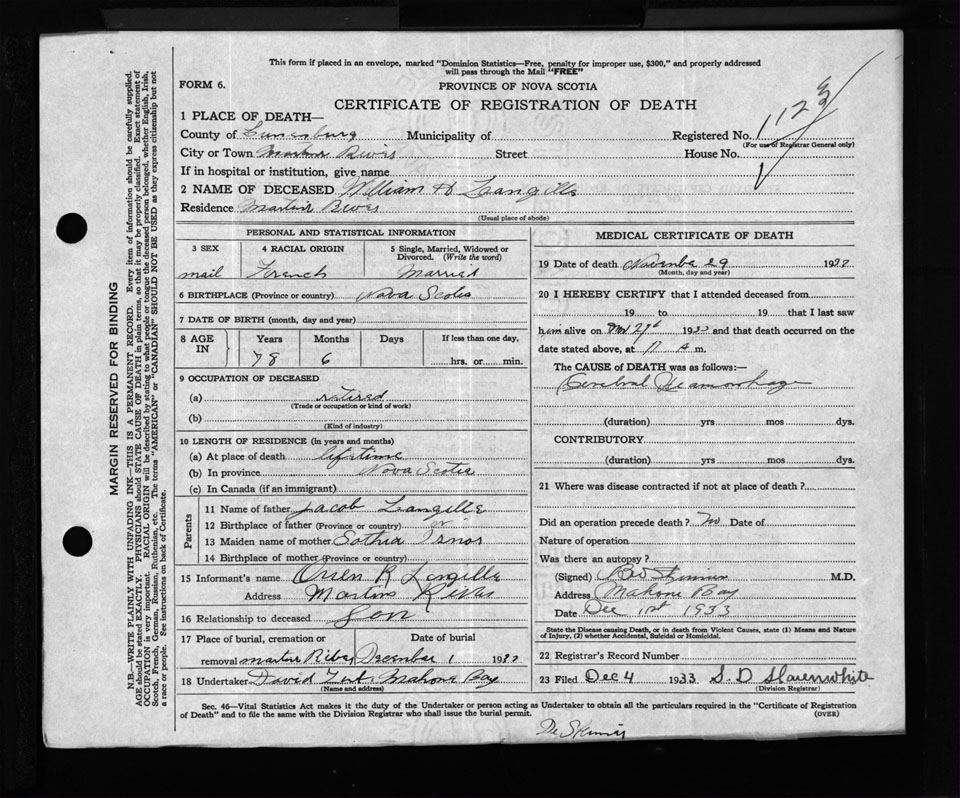 This form if placed in an envelope, marked "Dominion Statistics—Free, penalty for improper use, $300," and properly addressed
will pass through the Mail "FREE"
FORM 6.
PROVINCE OF NOVA SCOTIA
CERTIFICATE OF REGISTRATION OF DEATH
1 PLACE OF DEATH—
County of Lunenburg Municipality of Registered No. 1123
(For use of Registrar General only)
City or Town Martins Rivers Street House No.
If in hospital or institution, give name
2 NAME OF DECEASED William H Langille
Residence Martins River
(Usual place of abode)
PERSONAL AND STATISTICAL INFORMATION
3 SEX 4 RACIAL ORIGIN 5 Single, Married, Widowed or Divorced. (Write the word)
mail French Married
6 BIRTHPLACE (Province or country) Nova Scotia
7 DATE OF BIRTH (month, day and year)
8 AGE IN Years Months Days If less than one day,
78 6 hrs. or min.
9 OCCUPATION OF DECEASED
(a) retired
(Trade or occupation or kind of work)
(b)
(Kind of industry)
10 LENGTH OF RESIDENCE (in years and months)
(a) At place of death lifetime
(b) In province Nova Scotia
(c) In Canada (if an immigrant)
Parents
11 Name of father Jacob Langille
12 Birthplace of father (Province or country)
13 Maiden name of mother Sothia Isnor
14 Birthplace of mother (Province or country)
15 Informant's name Orien R Langille
Address Martins River
16 Relationship to deceased Son
17 Place of burial, cremation or removal Date of burial
Martins River December 1 1933
18 Undertaker David Mahone Bay
(Name and address)
MEDICAL CERTIFICATE OF DEATH
19 Date of death November 29 1933
(Month, day and year)
20 I HEREBY CERTIFY that I attended deceased from
19 to 19 that I last saw
him alive on 1933 and that death occurred on the
date stated above, at 11 A m.
The CAUSE of DEATH was as follows:—
Cerebral Heamorrhage
(duration) yrs mos dys.
CONTRIBUTORY
(duration) yrs mos dys.
21 Where was disease contracted if not at place of death?
Did an operation precede death? No Date of
Nature of operation
Was there an autopsy?
(Signed) Skinner M.D.
Address Mahone Bay
Date Dec 1st 1933
State the Disease causing Death, or in death from Violent Causes, state (1) Means and Nature
of Injury, (2) whether Accidental, Suicidal or Homicidal.
22 Registrar's Record Number
23 Filed Dec 4 1933 S. D Slauenwhite
(Division Registrar)
Sec. 46—Vital Statistics Act makes it the duty of the Undertaker or person acting as Undertaker to obtain all the particulars required in the "Certificate of Registration
of Death" and to file the same with the Division Registrar who shall issue the burial permit. (OVER)
Dr Skinner
MARGIN RESERVED FOR BINDING
N.B.—WRITE PLAINLY WITH UNFADING INK—THIS IS A PERMANENT RECORD. Every item of information should be carefully supplied.
AGE should be stated EXACTLY. PHYSICIANS should STATE CAUSE OF DEATH in plain terms, so that it may be properly classified. Exact statement of
OCCUPATION is very important. RACIAL ORIGIN will be described by stating to what people or tongue the deceased person belonged, whether English, Irish,
Scotch, French, German, Russian, Ruthenian, etc. The terms "AMERICAN" or "CANADIAN" SHOULD NOT BE USED as they express citizenship but not
a race or people. See instructions on back of Certificate.